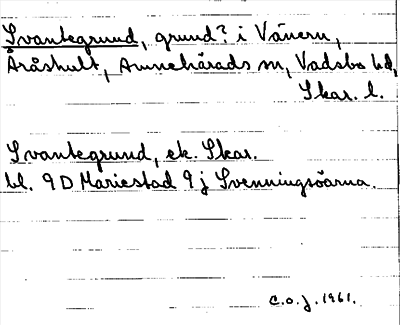 Svantegrund, grund? i Vänern,
Åråshult, Amnehärads sn, Vadsbo hd,
Skar. l.
Svantegrund, ek. Skar.
bl. 9D Mariestad 9j Svenningsöarna.
C.O.J. 1961.